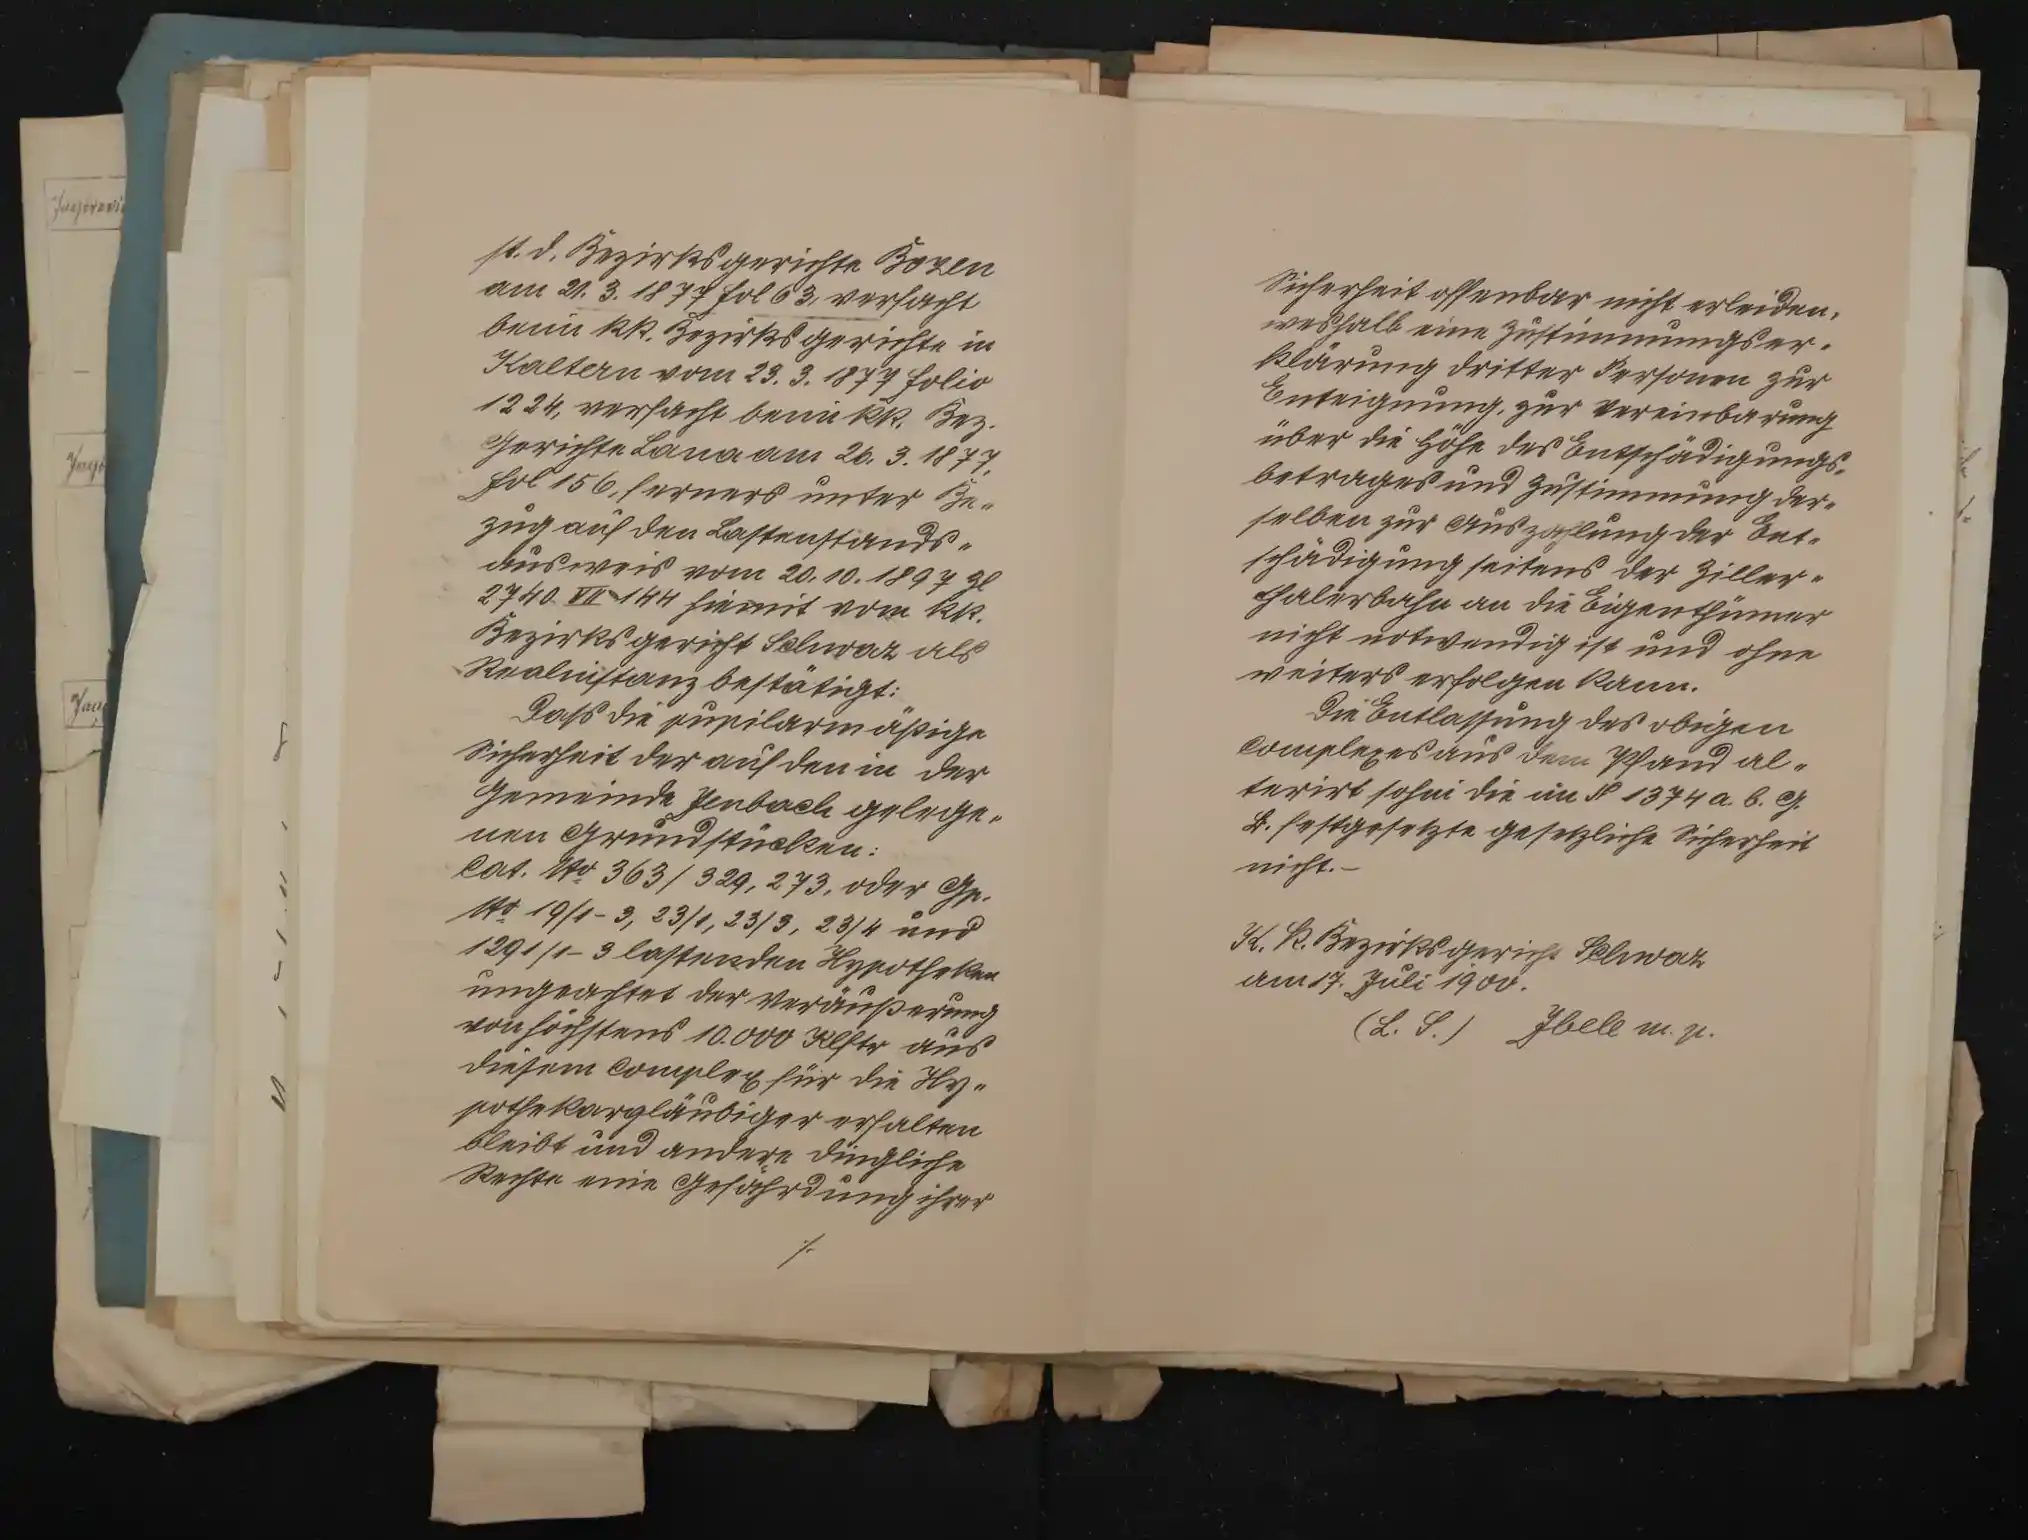 st. d. Bezirksgerichte Bozen
am 21. 3. 1877 fol 63, verfacht
beim kk. Bezirksgerichte in
Kaltern vom 23. 3. 1877 folio
1224, verfacht beim kk. Bez.
Gerichte Lana am 26. 3. 1877.
fol 156, ferners unter Be-
zug auf den Lastenstands-
ausweis vom 20. 10. 1897 Zl
2740 VII 144 hiemit vom kk.
Bezirksgericht Schwaz als
Realinstanz bestätigt:
Dass die pupilarmäßige
Sicherheit der auf den in der
Gemeinde Jenbach gelege-
nen Grundstücken:
Cat. No 363/329, 273, oder Gp.
No 19/1-3, 23/1, 23/3, 23/4 und
1291/1-3 lastenden Hypotheken
ungeachtet der Veräußerung
von höchstens 10.000 Klftr aus
diesem Complex für die Hy-
pothekargläubiger erhalten
bleibt und andere dingliche
Rechte eine Gefährdung ihrer
./.
Sicherheit offenbar nicht erleiden,
weshalb eine Zustimmungser-
klärung dritter Personen zur
Enteignung, zur Vereinbarung
über die Höhe des Entschädigungs-
betrages und Zustimmung der-
selben zur Auszahlung der Ent-
schädigung seitens der Ziller-
thalerbahn an die Eigenthümer
nicht notwendig ist und ohne
weiters erfolgen kann.
Die Entlassung des obigen
Complexes aus dem Pfand al-
terirt sohin die im § 1374 a. b. G.
B. festgesetzte gesetzliche Sicherheit
nicht.-
K. k. Bezirksgericht Schwaz
am 17. Juli 1900.
(L. S.) Ibele m. p.